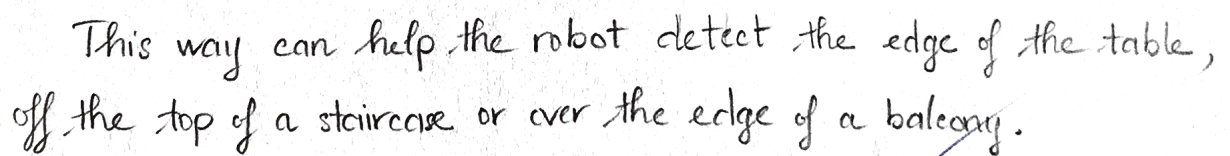 This way can help the robot detect the edge of the table,
off the top of a staircase or over the edge of a balcony.